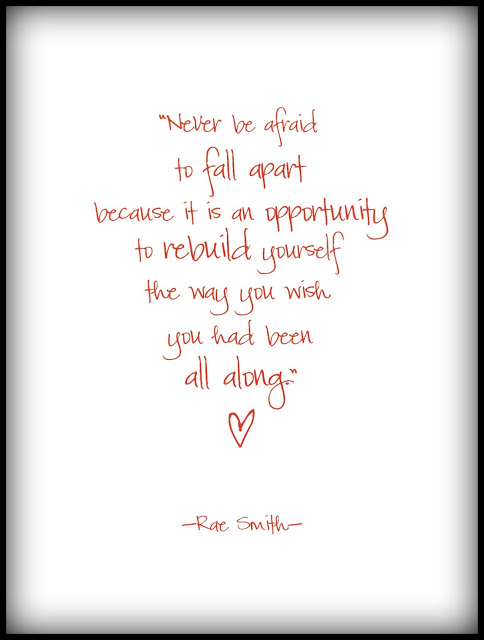 "Never be afraid
to fall apart
because it is an opportunity
to rebuild yourself
the way you wish
you had been
all along."
—Rae Smith—